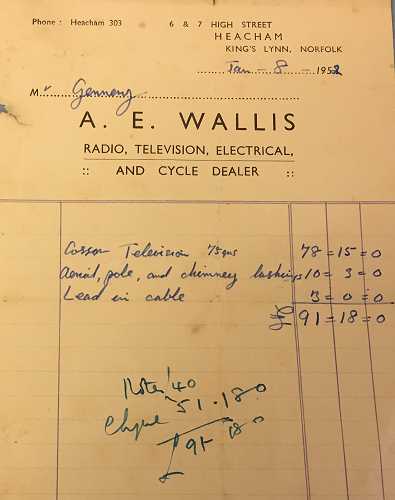 Phone : Heacham 303
6 & 7 HIGH STREET
HEACHAM
KING'S LYNN, NORFOLK
Jan - 8 - 1952
Mr
A. E. WALLIS
RADIO, TELEVISION, ELECTRICAL,
:: AND CYCLE DEALER ::
Cossor Television 75gns 78 = 15 = 0
Aerial, pole, and chimney lashings 10 = 3 = 0
Lead in cable 3 = 0 = 0
£ 91 = 18 = 0
Notes 40
Cheque 51 . 18 0
£ 91 18 0